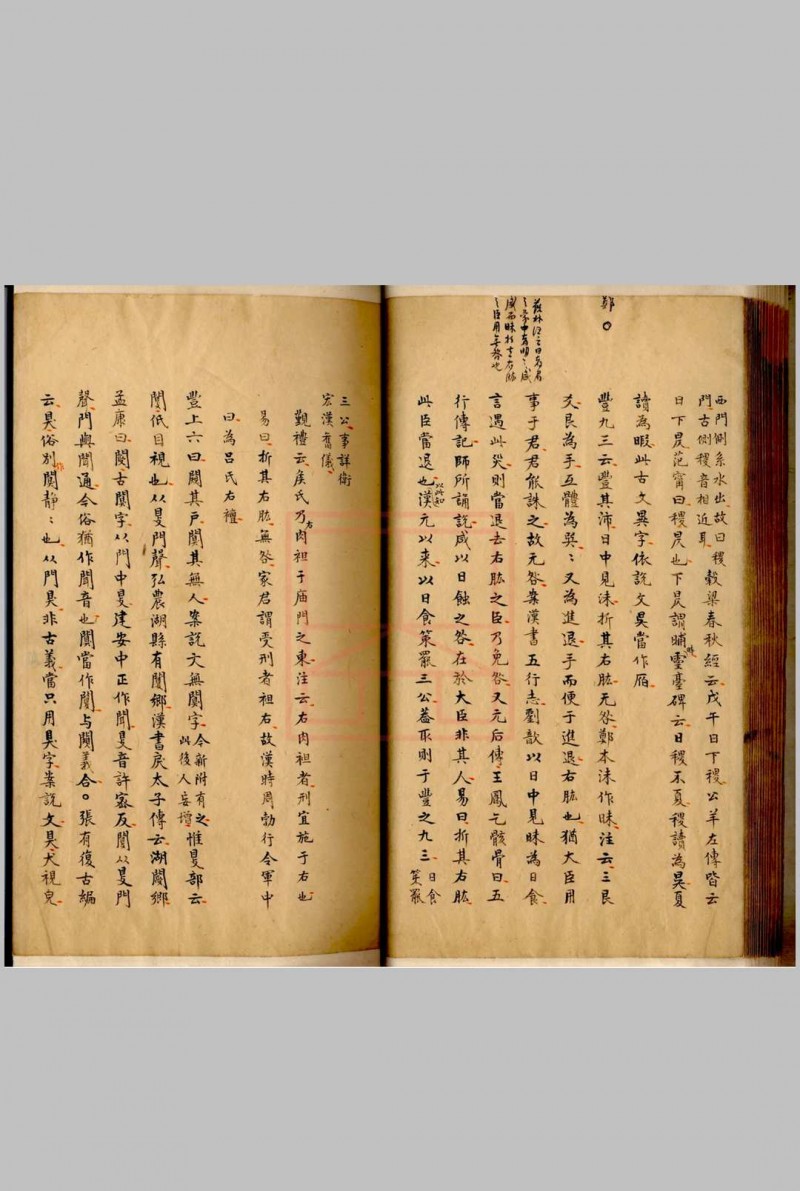 鄭〇
蘇林注之曰
西門側系水出故曰稷
門古側稷音相近耳
穀梁春秋經云戊午日下稷公羊左傳皆云
日下昃范甯曰稷昃也下昃謂晡時靈臺碑云日稷不夏稷讀為昃夏
讀為暇此古文異字依說文昃當作𣅔
豐九三云豐其沛日中見沬折其右肱无咎鄭本沬作昧注云三艮
爻艮為手互體為巽〻又為進退手而便于進退右肱也猶大臣用
事于君君能誅之故无咎案漢書五行志劉歆以日中見昧為日食
言遇此災則當退去右肱之臣乃免咎又元后傳王鳳乞骸骨曰五
行傳記師所誦說咸以日蝕之咎在於大臣非其人易曰折其右肱
此臣當退也以此知漢元以來以日食策罷三公蓋取則于豐之九三日食
策罷
三公事詳衛
宏漢舊儀
覲禮云矦氏乃右肉袒于庙門之東注云右肉袒者刑宜施于右也
易曰折其右肱無咎家君謂受刑者袒右故漢時周勃行令軍中
曰為呂氏右襢
豐上六曰闚其戶闃其無人案說文無闃字今新附有之
此後人妄增惟𡕥部云
閺低目視也从𡕥門聲弘農湖縣有閺鄉漢書戾太子傳云湖閺鄉
孟康曰閺古闅字从門中𡕥建安中正作聞𡕥音許密反閺从𡕥門
聲門與聞通今俗猶作聞音也闃當作閺与闚義合。張有復古編
云狊俗別作闃靜〻也从門狊非古義當只用狊字案說文狊犬視皃